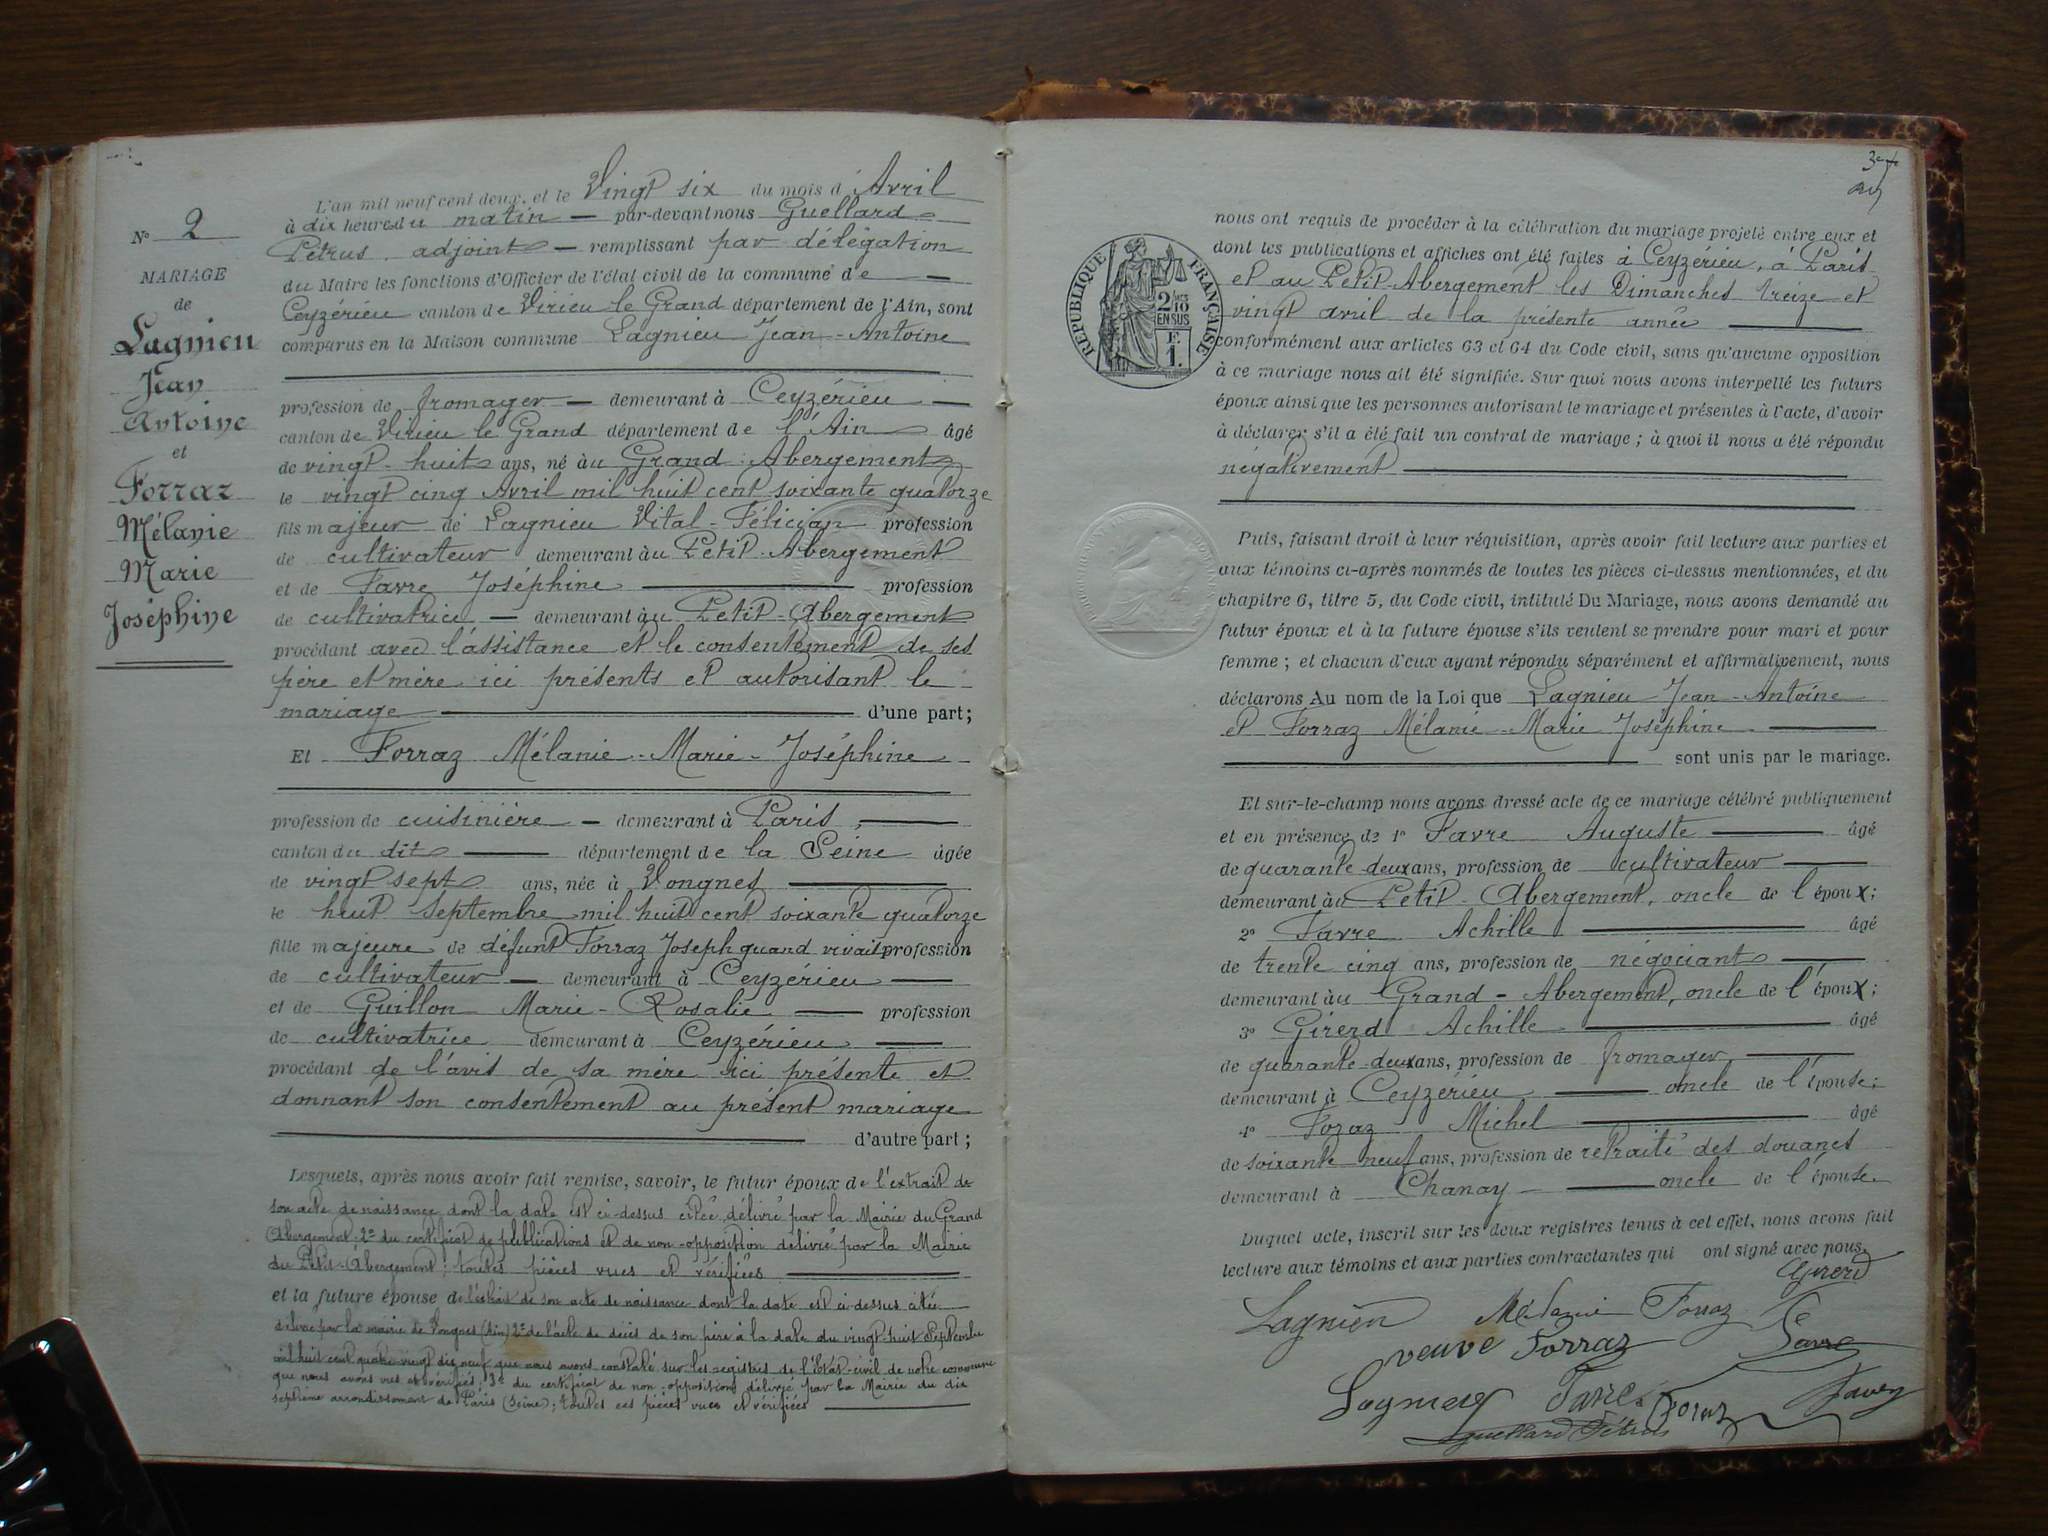 N° 2
MARIAGE
de
Lagnieu
Jean
Antoine
et
Forraz
Mélanie
Marie
Joséphine
L'an mil neuf cent deux, et le Vingt six du mois d'Avril
à dix heures du matin — par-devant nous Guellard
Pétrus, adjoint — remplissant par délégation
du Maire les fonctions d'Officier de l'état civil de la commune de
Ceyzérieu canton de Virieu le Grand département de l'Ain, sont
comparus en la Maison commune Lagnieu Jean-Antoine
profession de fromager — demeurant à Ceyzérieu —
canton de Virieu le Grand département de l'Ain âgé
de vingt-huit ans, né au Grand-Abergement
le vingt cinq Avril mil huit cent soixante quatorze
fils majeur de Lagnieu Vital-Félicien profession
de cultivateur demeurant au Petit-Abergement
et de Favre Joséphine profession
de cultivatrice — demeurant au Petit-Abergement
procédant avec l'assistance et le consentement de ses
père et mère ici présents et autorisant le
mariage d'une part;
Et Forraz Mélanie-Marie-Joséphine
profession de cuisinière — demeurant à Paris,
canton du dit département de la Seine âgée
de vingt sept ans, née à Vongnes
le huit Septembre mil huit cent soixante quatorze
fille majeure de défunt Forraz Joseph quand vivait profession
de cultivateur — demeurant à Ceyzérieu
et de Guillon Marie-Rosalie profession
de cultivatrice demeurant à Ceyzérieu
procédant de l'avis de sa mère ici présente et
donnant son consentement au présent mariage
d'autre part;
Lesquels, après nous avoir fait remise, savoir, le futur époux de l'extrait de
son acte de naissance dont la date est ci-dessus citée, délivré par la Mairie du Grand
Abergement 2° du certificat de publications et de non-opposition délivré par la Mairie
du Petit-Abergement; toutes pièces vues et vérifiées
et la future épouse de l'extrait de son acte de naissance dont la date est ci-dessus citée
délivré par la mairie de Vongnes (Ain) 2° de l'acte de décès de son père à la date du vingt-huit Septembre
mil huit cent quatre vingt dix neuf que nous avons constaté sur les registres de l'Etat-civil de notre commune
que nous avons vus et vérifiés; 3° du certificat de non-opposition délivré par la Mairie du dix
septième arrondissement de Paris (Seine); toutes ces pièces vues et vérifiées
RÉPUBLIQUE FRANÇAISE
2/10
EN SUS
F.
1.
nous ont requis de procéder à la célébration du mariage projeté entre eux et
dont les publications et affiches ont été faites à Ceyzérieu, à Paris
et au Petit-Abergement les Dimanches treize et
vingt avril de la présente année
conformément aux articles 63 et 64 du Code civil, sans qu'aucune opposition
à ce mariage nous ait été signifiée. Sur quoi nous avons interpellé les futurs
époux ainsi que les personnes autorisant le mariage et présentes à l'acte, d'avoir
à déclarer s'il a été fait un contrat de mariage; à quoi il nous a été répondu
négativement
Puis, faisant droit à leur réquisition, après avoir fait lecture aux parties et
aux témoins ci-après nommés de toutes les pièces ci-dessus mentionnées, et du
chapitre 6, titre 5, du Code civil, intitulé Du Mariage, nous avons demandé au
futur époux et à la future épouse s'ils veulent se prendre pour mari et pour
femme; et chacun d'eux ayant répondu séparément et affirmativement, nous
déclarons Au nom de la Loi que Lagnieu Jean-Antoine
et Forraz Mélanie-Marie Joséphine
sont unis par le mariage.
Et sur-le-champ nous avons dressé acte de ce mariage célébré publiquement
et en présence de 1° Favre Auguste âgé
de quarante deux ans, profession de cultivateur
demeurant au Petit-Abergement, oncle de l'époux;
2° Favre Achille âgé
de trente cinq ans, profession de négociant
demeurant au Grand-Abergement, oncle de l'époux;
3° Girerd Achille âgé
de quarante-deux ans, profession de fromager
demeurant à Ceyzérieu oncle de l'épouse;
4° Foraz Michel âgé
de soixante neuf ans, profession de retraité des douanes
demeurant à Chanay oncle de l'épouse
Duquel acte, inscrit sur les deux registres tenus à cet effet, nous avons fait
lecture aux témoins et aux parties contractantes qui ont signé avec nous.
Girerd
Lagnieu Mélanie Forraz
veuve Forraz Favre
Lagnieu Favre Foraz
Guellard Pétrus